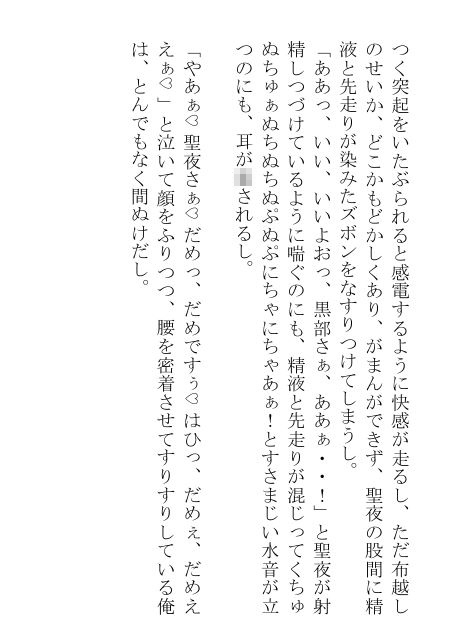 つく突起をいたぶられると感電するように快感が走るし、ただ布越し
のせいか、どこかもどかしくあり、がまんができず、聖夜の股間に精
液と先走りが染みたズボンをなすりつけてしまうし。
「ああっ、いい、いいよおっ、黒部さぁ、ああぁ・・！」と聖夜が射
精しつづけているように喘ぐのにも、精液と先走りが混じってくちゅ
ぬちゅぁぬちぬちぬぷぬぷにちゃにちゃあぁ！とすさまじい水音が立
つのにも、耳がされるし。
「やあぁ♡聖夜さぁ♡だめっ、だめですぅ♡はひっ、だめぇ、だめえ
えぁ♡」と泣いて顔をふりつつ、腰を密着させてすりすりしている俺
は、とんでもなく間ぬけだし。